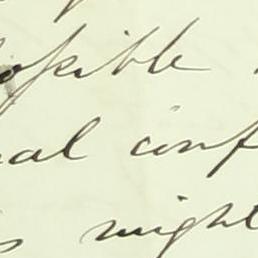 possible
al conf
might